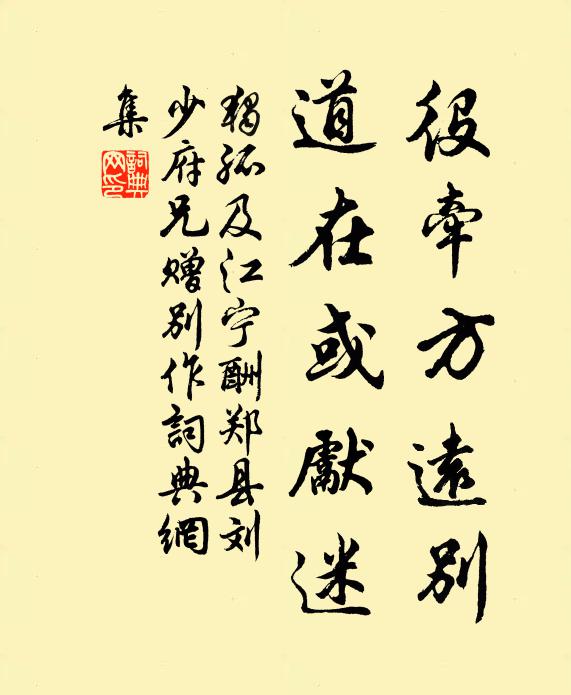 役牵方远别
道在或獻迷
独孤及江宁酬郑县刘
少府兄赠别作詞典網
集
詞典
网印